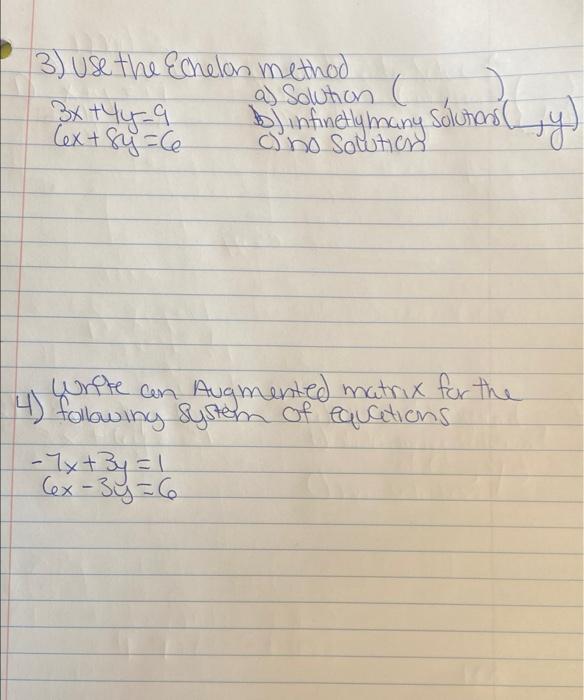 3) Use the Echelon method
a) Solution ( )
3x + 4y = 9
b) infinetly many solutions ( _, y)
6x + 8y = 6
c) no solution
4) Write an Augmented matrix for the
following system of equations
-7x + 3y = 1
6x - 3y = 6